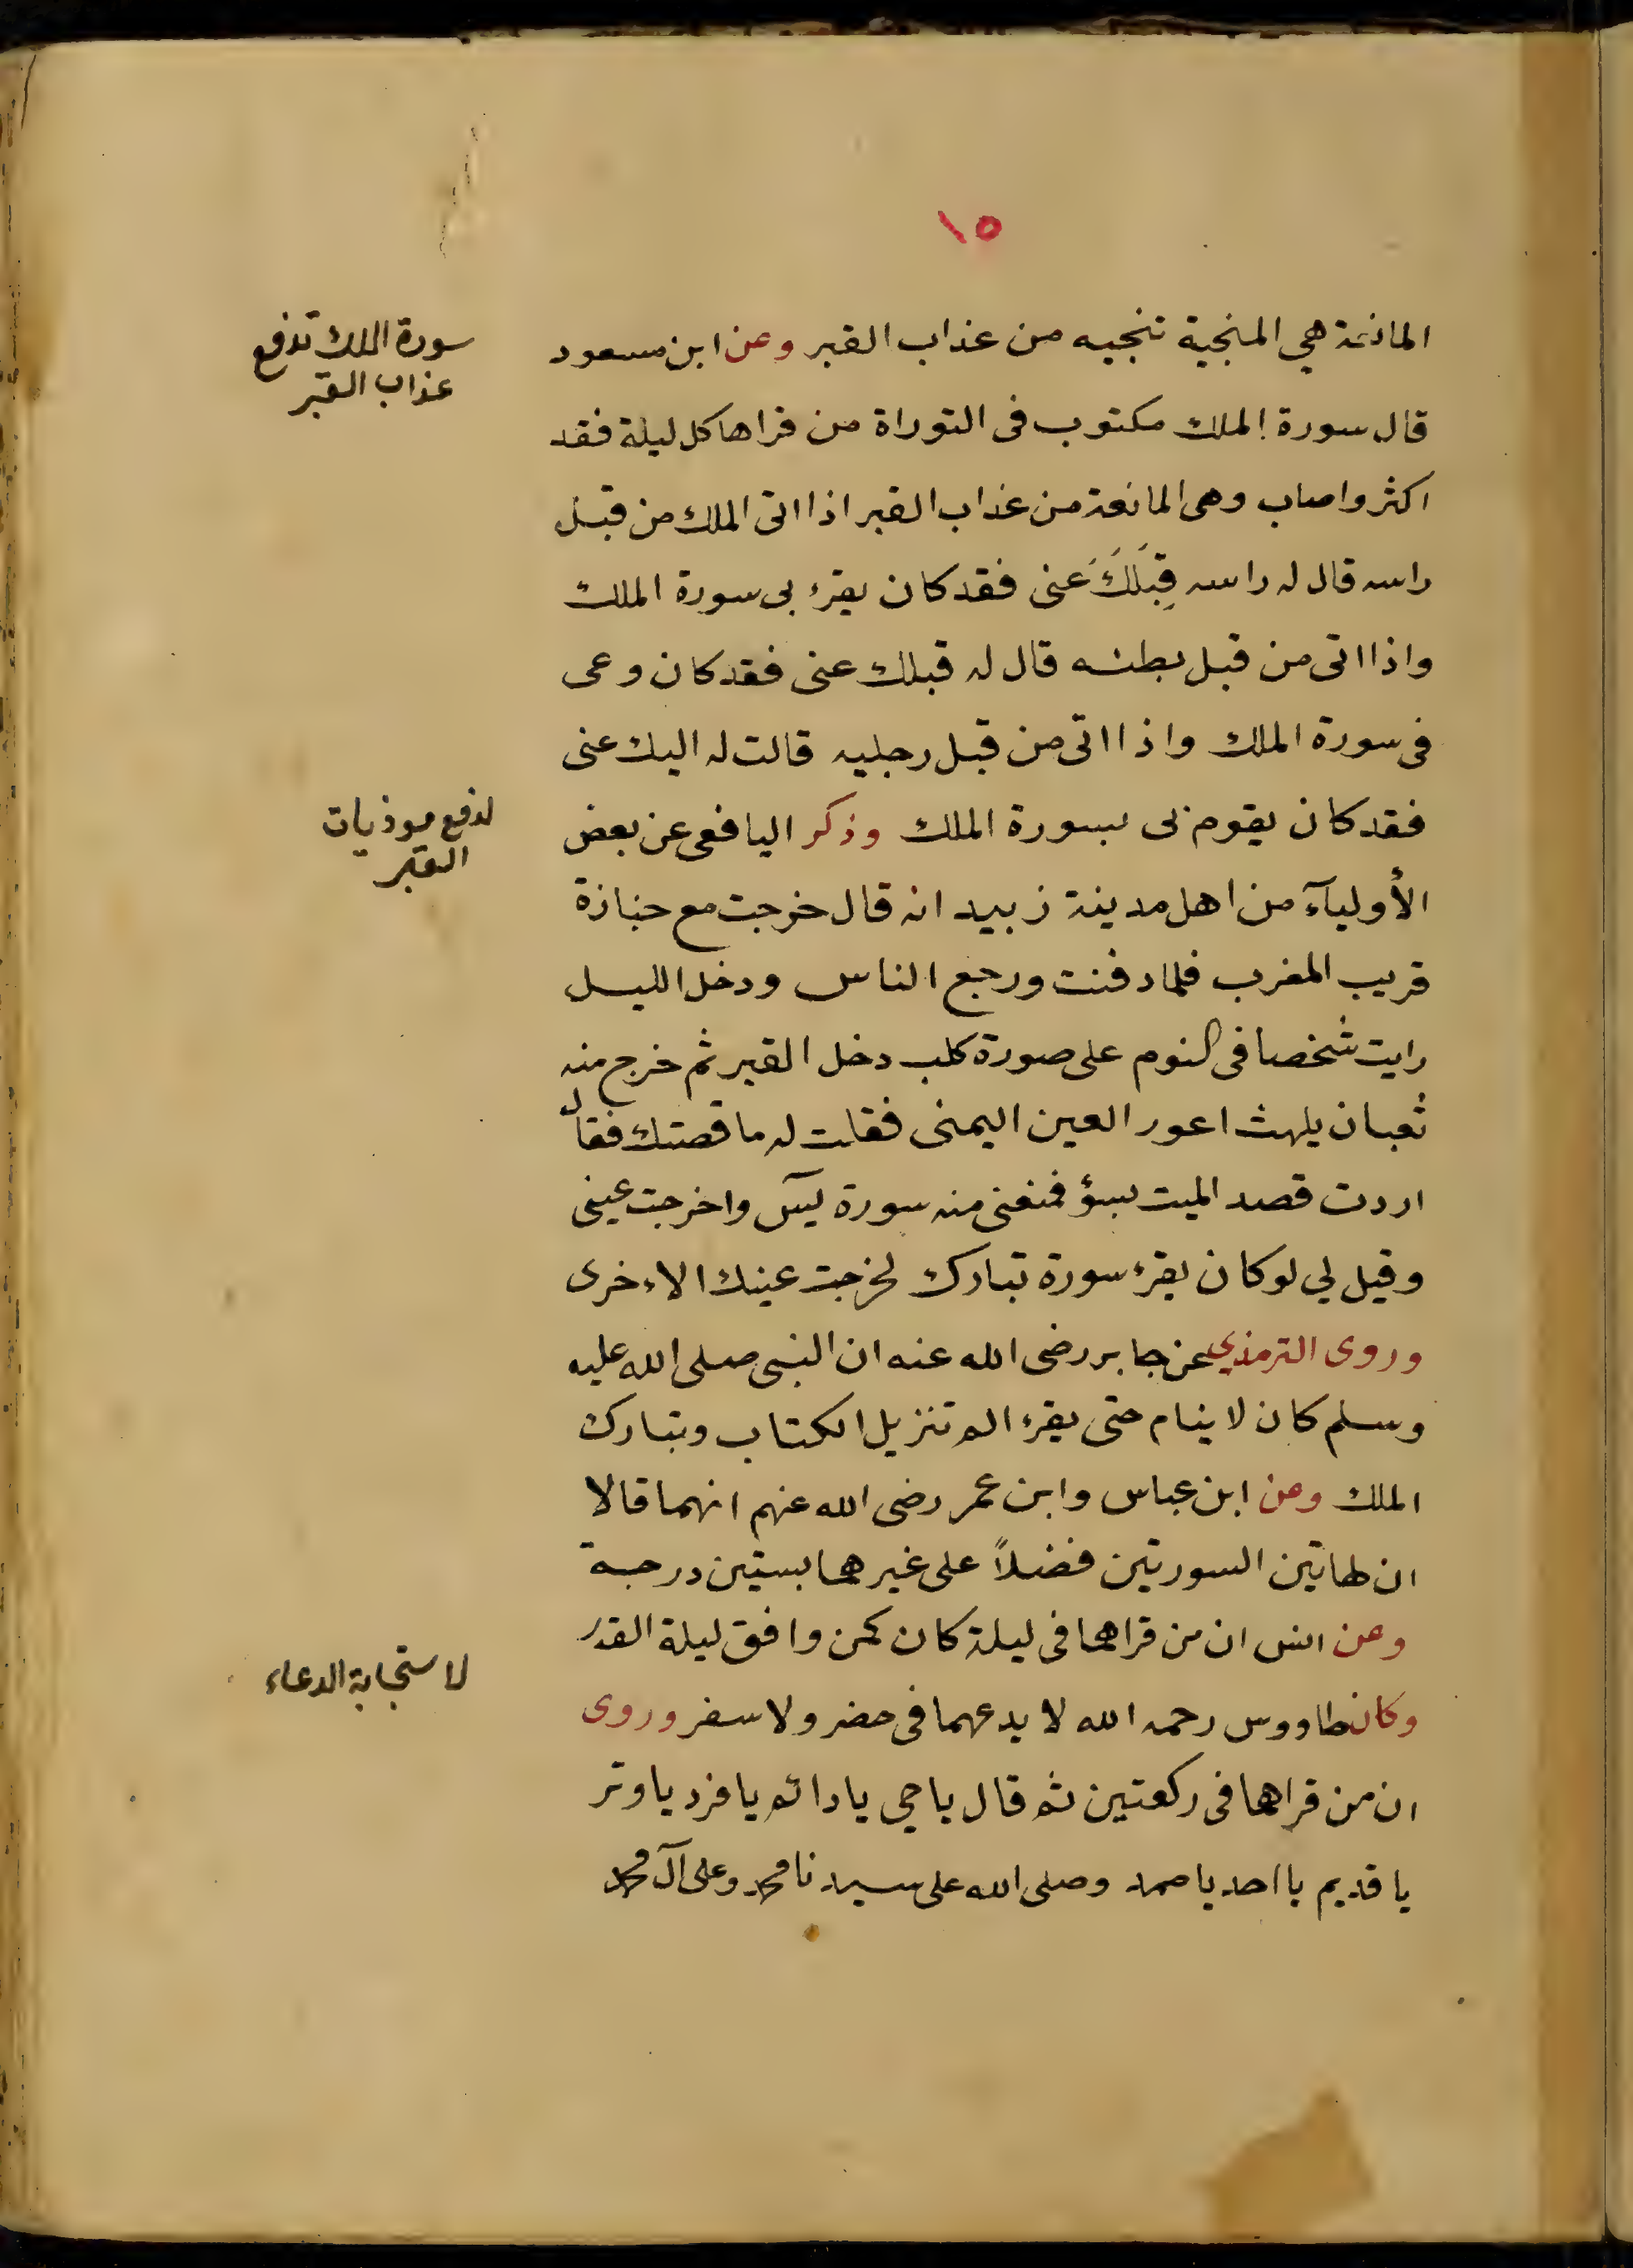 ١٥
المانعة هي المنجية تنجيه من عذاب القبر وعن ابن مسعود
سورة الملك تدفع
عذاب القبر
قال سورة الملك مكتوب فى التوراة من قراها كل ليلة فقد
اكثر واصاب وهى المانعة من عذاب القبر اذا اتى الملك من قبل
راسه قال له راسه قِبَلَكَ عنى فقد كان يقرء بى سورة الملك
واذا اتى من قبل بطنه قال له قبلك عنى فقد كان وعى
فى سورة الملك واذا اتى من قبل رجليه قالت له اليك عنى
فقد كان يقوم بى بسورة الملك وذكر اليافعى عن بعض
لدفع موذيات
القبر
الأوليآء من اهل مدينة زبيد انه قال خرجت مع جنازة
قريب المغرب فلما دفنت ورجع الناس ودخل الليل
رايت شخصا فى النوم على صورة كلب دخل القبر ثم خرج منه
ثعبان يلهث اعور العين اليمنى فقلت له ما قصتك فقال
اردت قصد الميت بسؤ فمنعنى منه سورة يسٓ واخرجت عينى
وقيل لي لو كان يقرء سورة تبارك لخرجت عينك الاءخرى
وروى الترمذي عن جابر رضى الله عنه ان النبى صلى الله عليه
وسلم كان لا ينام حتى يقرء الم تنزيل الكتاب وتبارك
الملك وعن ابن عباس وابن عمر رضى الله عنهم انهما قالا
ان لهاتين السورتين فضلاً على غيرهما بستين درجة
وعن انس ان من قراهما فى ليلة كان كمن وافق ليلة القدر
لاستجابة الدعاء
وكان طاووس رحمه الله لا يدعهما فى حضر ولا سفر وروى
ان من قراهما فى ركعتين ثم قال يا حي يا دائم يا فرد يا وتر
يا قديم يا احد يا صمد وصلى الله على سيدنا محمد وعلى آل محمد